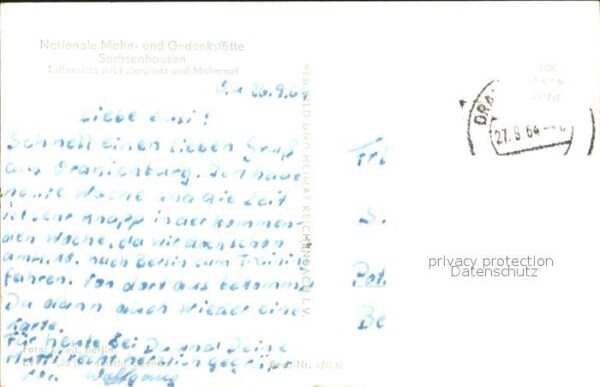 Nationale Mahn- und Gedenkstätte
Sachsenhausen
Teilansicht mit Feierplatz und Mahnmal
26.9.64
Liebe Susi!
Schnell einen lieben Gruß
aus Oranienburg. Ich habe
heute Wache und die Zeit
ist sehr knapp in der kommen-
den Woche, da wir doch schon
am 1.10. nach Berlin zum
fahren. Von dort aus bekommst
Du dann auch wieder eine
Karte.
Für heute Sei Du und Deine
Mutti recht herzlich gegrüßt
von Wolfgang
VERLAG BILD UND HEIMAT REICHENBACH I. V.
Foto: Berlin
Best.-Nr.
ORA
27.9.64
Frl
S.
Pot.
Be
privacy protection
Datenschutz